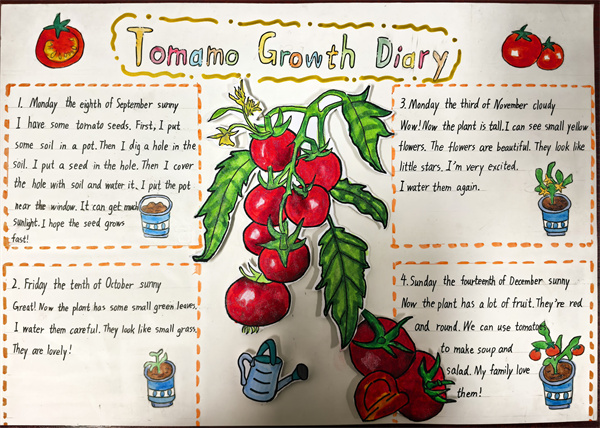 Tomamo Growth Diary
1. Monday the eighth of September sunny
I have some tomato seeds. First, I put
some soil in a pot. Then I dig a hole in the
soil. I put a seed in the hole. Then I cover
the hole with soil and water it. I put the pot
near the window. It can get much
sunlight. I hope the seed grows
fast!
2. Friday the tenth of October sunny
Great! Now the plant has some small green leaves.
I water them careful. They look like small grass.
They are lovely!
3. Monday the third of November cloudy
Wow! Now the plant is tall. I can see small yellow
flowers. The flowers are beautiful. They look like
little stars. I'm very excited.
I water them again.
4. Sunday the fourteenth of December sunny
Now the plant has a lot of fruit. They're red
and round. We can use tomatoes
to make soup and
salad. My family love
them!